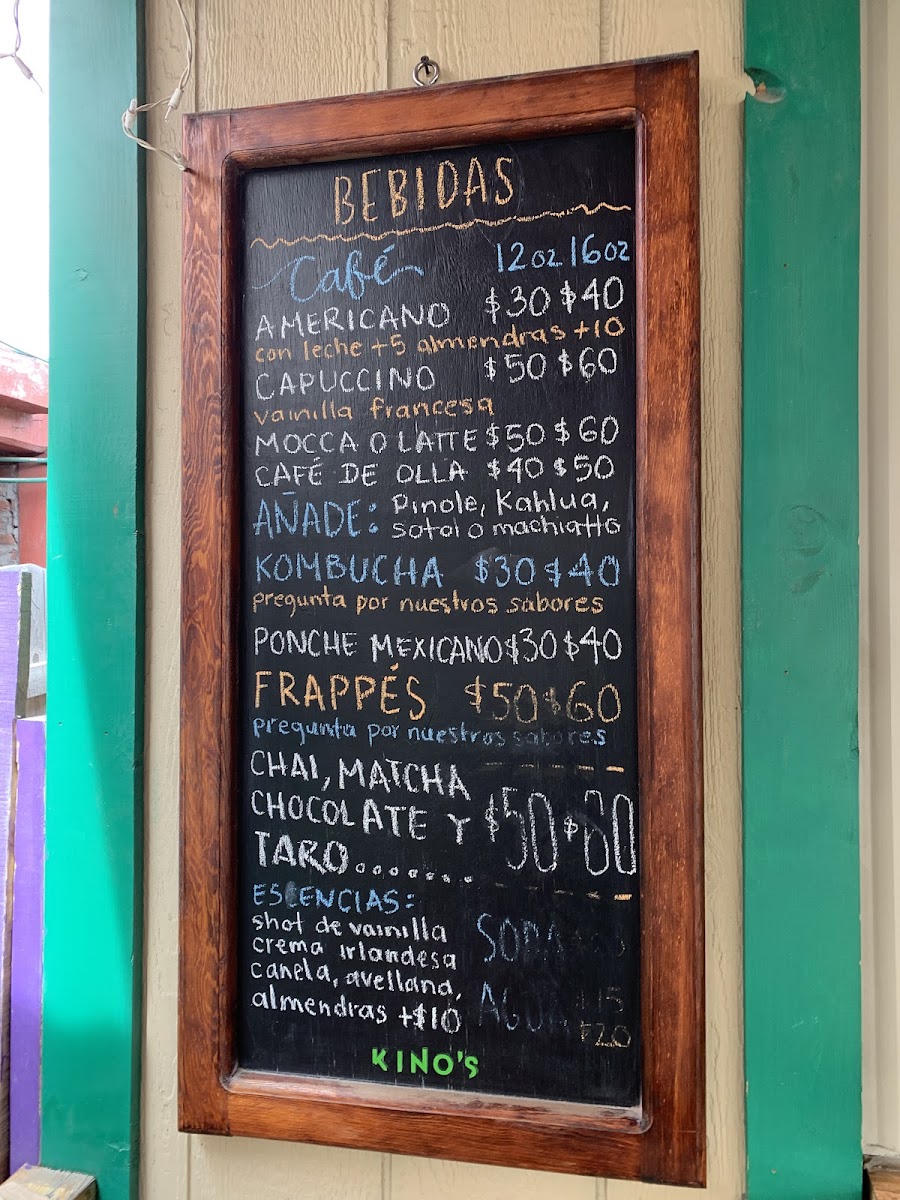 BEBIDAS
Café 12oz 16oz
AMERICANO $30 $40
con leche +5 almendras +10
CAPUCCINO $50 $60
vainilla francesa
MOCCA O LATTE $50 $60
CAFÉ DE OLLA $40 $50
AÑADE: Pinole, Kahlua,
sotol o machiatto
KOMBUCHA $30 $40
pregunta por nuestros sabores
PONCHE MEXICANO $30 $40
FRAPPÉS $50 $60
pregunta por nuestros sabores
CHAI, MATCHA
CHOCOLATE Y
TARO........ $50 $60
ESCENCIAS:
shot de vainilla
crema irlandesa
canela, avellana,
almendras +$10
SODA
AGUA $15
$20
KINO'S